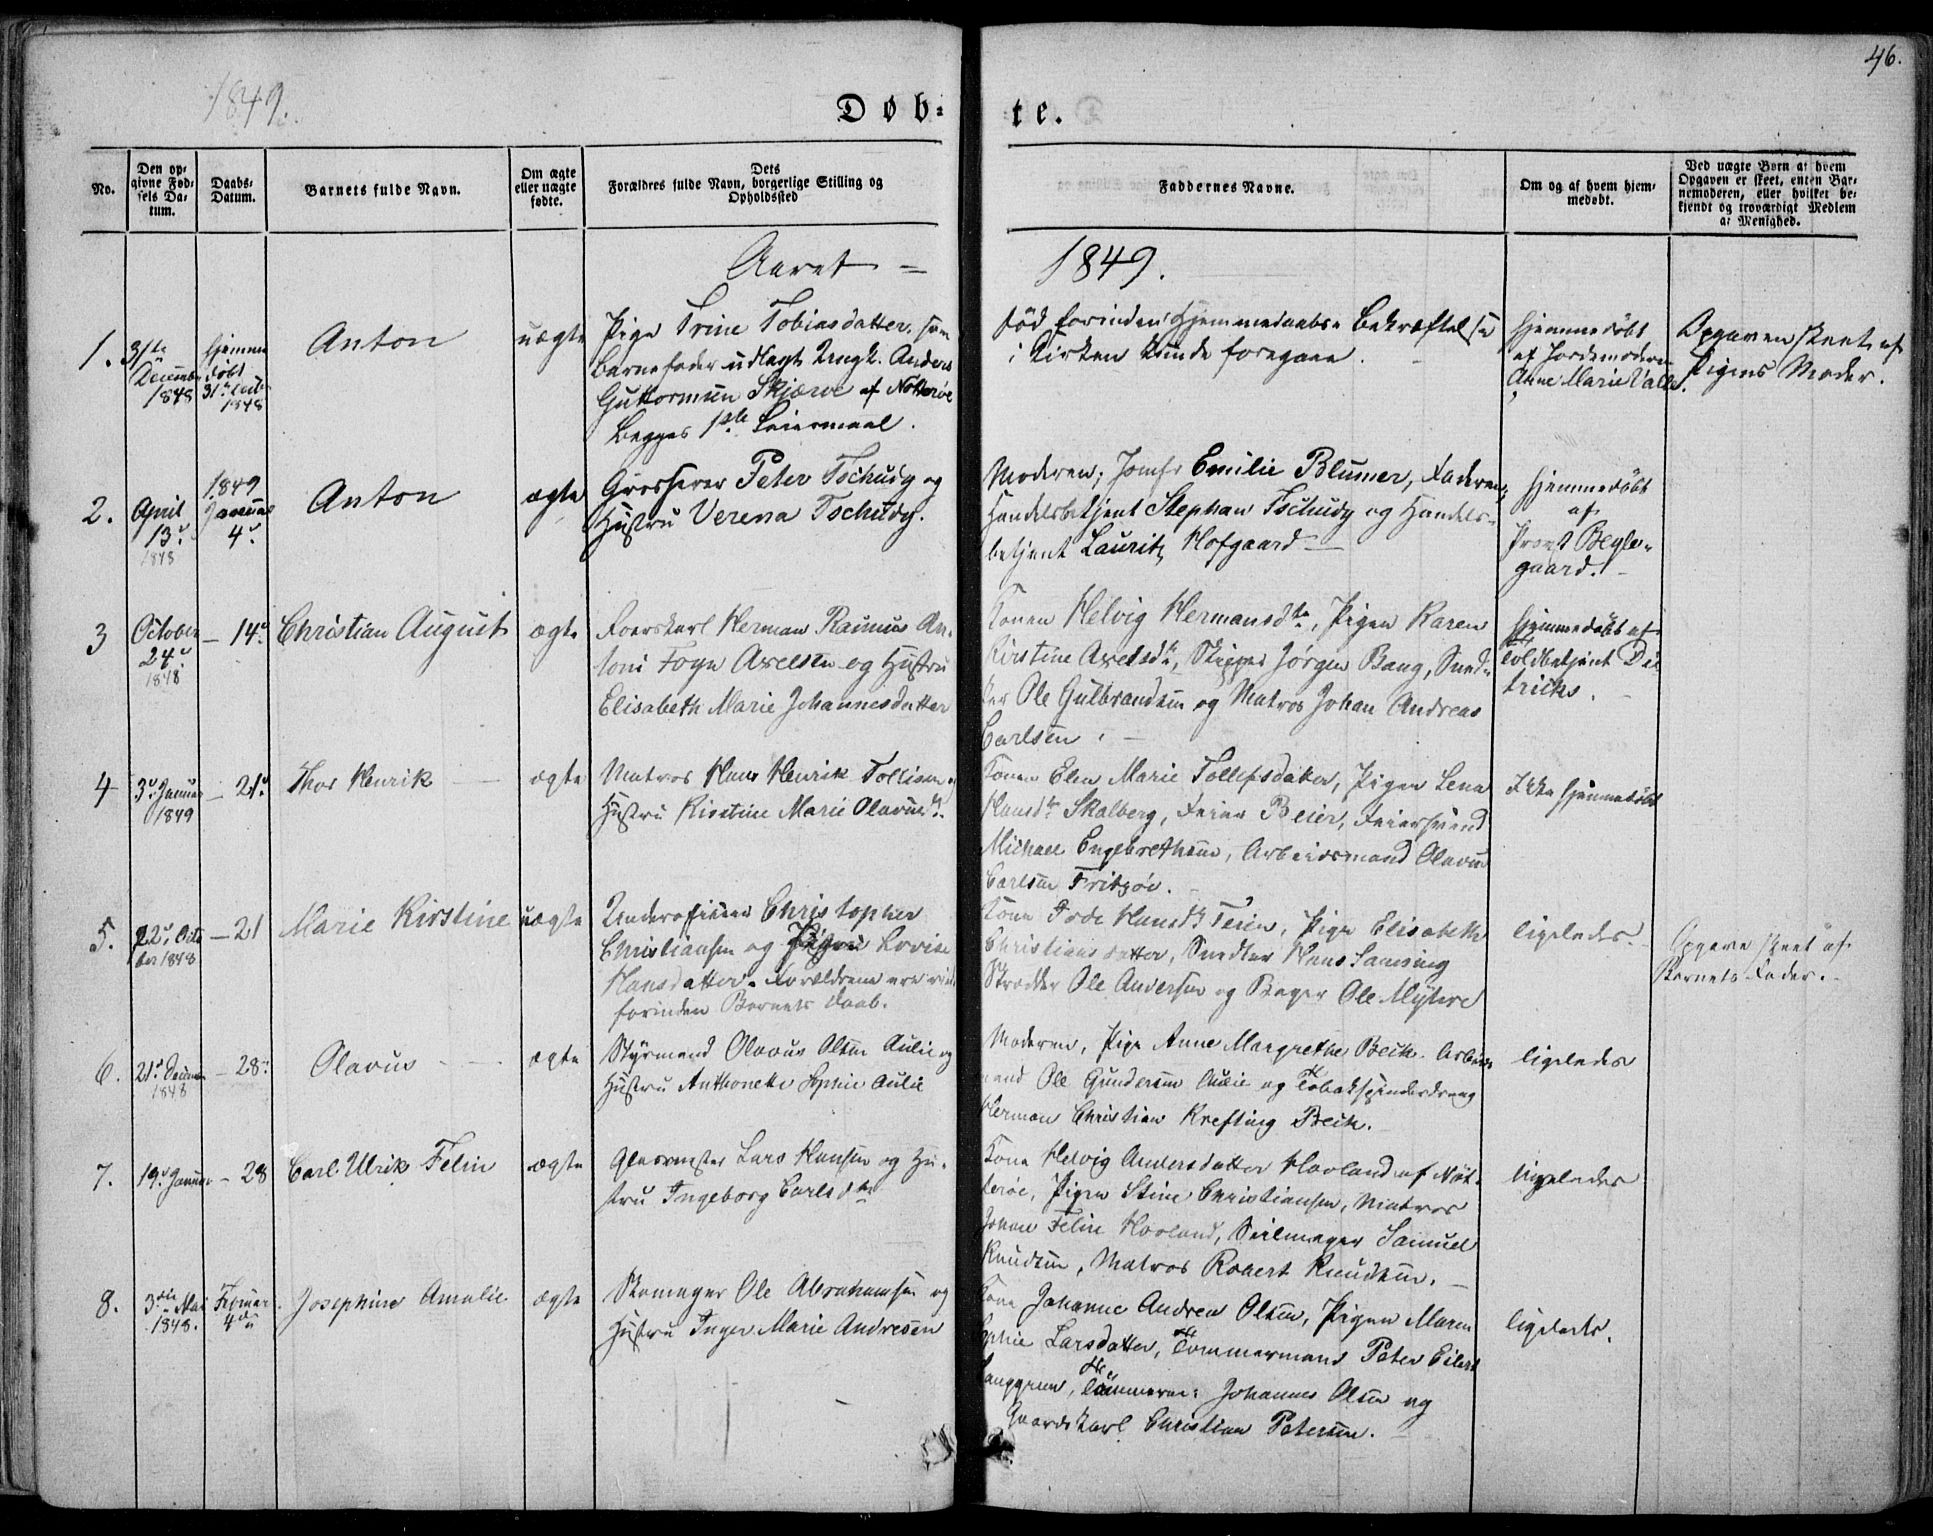 46.
1849.
Døb=
te.
No.
Den opgivne Fødsels Datum.
Daabs-Datum.
Barnets fulde Navn.
Om ægte eller uægte fødte.
Dets Forældres fulde Navn, borgerlige Stilling og Opholdssted
Faddernes Navne.
Om og af hvem hjemmedøbt.
Ved uægte Børn af hvem Opgaven er skeet, enten Barnemoderen, eller hvilket bekjendt og troværdigt Medlem af Menighed.
Aaret =
1849.
1. 31te December 1848
Hjemmedøbt 31te Decbr 1848
Anton
uægte
Pige Trine Tobiasdatter, som
Barnefader udlagt Ungk. Anders
Guttormsen Skjærve af Nøtterøe
Begges 1ste Leiermaal.
død forinden Hjemmedaabs Bekræftelse
i Kirken kunde foregaae.
Hjemmedøbt
af Jordemoderen
Anne Marie Valle.
Opgaven skeet af
Pigens Moder.
2. April 13de 1848
1849 Januar 4de
Anton
ægte
Grosserer Peter Tschudy og
Hustru Verena Tschudy.
Moderen, Jomfr Emilie Blumer, Faderen,
Handelsbetjent Stephan Tschudy og Handels-
betjent Lauritz Hofgaard
Hjemmedøbt
af
Provst Bryle-
gaard.
3 October 24de 1848
- 14de
Christian August
ægte
Toerskarl Herman Rasmus An-
toni Foyn Axelsen og Hustru
Elisabeth Marie Johannesdatter
Konen Helvig Hermansdtr, Pigen Karen
Kirstine Axelsdtr, Skipper Jørgen Bang, Sned-
ker Ole Gulbrandsen og Matros Johan Andreas
Carlsen.
Hjemmedøbt af
Toldbetjent Die-
trichs.
4 3de Januar 1849
- 21de
Thor Henrik
ægte
Matros Hans Henrik Tollisen og
Hustru Kirstine Marie Olavusdtr.
Konen Elen Marie Tollefsdatter, Pigen Lena
Hansdtr Skalberg, Feier Beier, Feiersvend
Michael Engebrethsen, Arbeidsmand Olavus
Carlsen Fritzøe.
Ikke hjemmedøbt
5. 22de Octo
ber 1848
- 21
Marie Kirstine
uægte
Underofficer Christopher
Christiansen og Pigen Lovise
Hansdatter. Forældrene ere viede
forinden Barnets Daab.
Kone Hansdtr Teien, Pige Elisabeth
Christiansdatter, Snedker Hans Samsing
Skrædder Ole Andersen og Bager Ole Myhre
ligeledes.
Opgave skeet af
Barnets Fader.
6. 21de December 1848
- 28de
Olavus
ægte
Styrmand Olavus Olsen Aulie og
Hustru Anthonette Sophie Aulie
Moderen, Pige Anne Margrethe Bech, Arbeids-
mand Ole Gundersen Aulie og Tobakspinderdreng
Herman Christian Krefting Bech.
ligeledes
7. 19de Januar
- 28
Carl Ulrik Felin
ægte
Glasmester Lars Hansen og Hu-
stru Ingeborg Carlsdtr
Kone Helvig Andersdatter Hovland af Nøt-
terøe, Pigen Stine Christiansen, Matros
Johan Felin Hovland, Seilmager Samuel
Knudsen, Matros Robert Knudsen.
ligeledes
8. 3die Mai 1848.
Februar 4de
Josephine Amalie
ægte
Skomager Ole Abrahamsen og
Hustru Inger Marie Andresen
Kone Johanne Andrea Olsen, Pigen Maren
Sophie Larsdatter, Tømmermand Peter Eilert
Langgreen, Tømmerm: Johannes Olsen og
Gaardskarl Christian Petersen.
ligeleds.